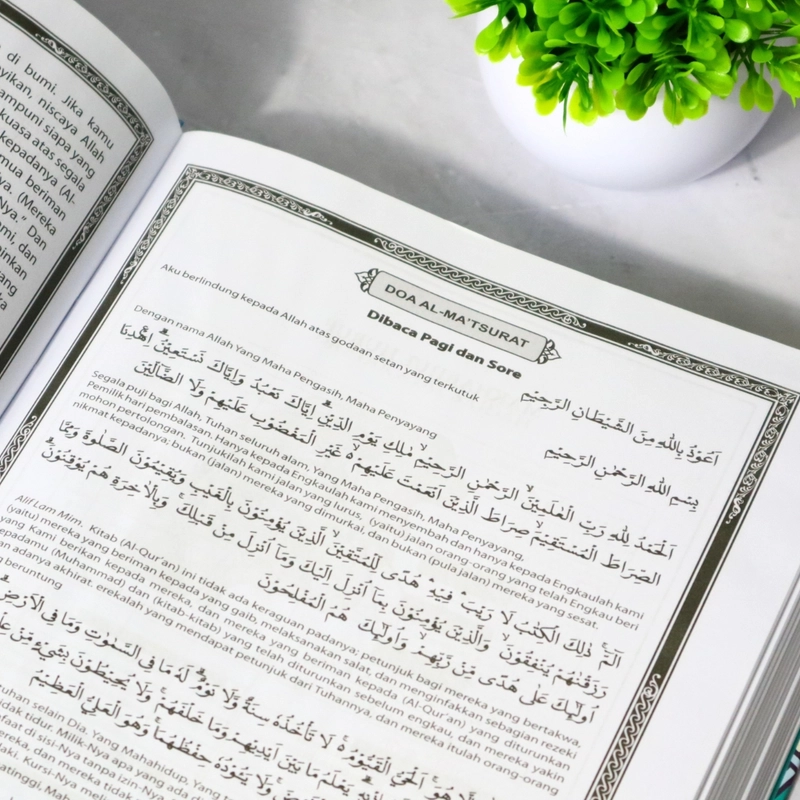 di bumi. Jika kamu
niscaya Allah
siapa yang
atas segala
kepadanya (Al-
beriman
(Mereka
Dan
dan
DOA AL-MA'TSURAT
Dibaca Pagi dan Sore
اَعُوْذُ بِاللّٰهِ مِنَ الشَّيْطَانِ الرَّجِيْمِ
Aku berlindung kepada Allah atas godaan setan yang terkutuk
بِسْمِ اللّٰهِ الرَّحْمٰنِ الرَّحِيْمِ
Dengan nama Allah Yang Maha Pengasih, Maha Penyayang
اَلْحَمْدُ لِلّٰهِ رَبِّ الْعٰلَمِيْنَۙ الرَّحْمٰنِ الرَّحِيْمِۙ مٰلِكِ يَوْمِ الدِّيْنِۗ اِيَّاكَ نَعْبُدُ وَاِيَّاكَ نَسْتَعِيْنُۗ اِهْدِنَا
الصِّرَاطَ الْمُسْتَقِيْمَۙ صِرَاطَ الَّذِيْنَ اَنْعَمْتَ عَلَيْهِمْ ەۙ غَيْرِ الْمَغْضُوْبِ عَلَيْهِمْ وَلَا الضَّاۤلِّيْنَ
Segala puji bagi Allah, Tuhan seluruh alam, Yang Maha Pengasih, Maha Penyayang,
Pemilik hari pembalasan. Hanya kepada Engkaulah kami menyembah dan hanya kepada Engkaulah kami
mohon pertolongan. Tunjukilah kami jalan yang lurus, (yaitu) jalan orang-orang yang telah Engkau beri
nikmat kepadanya; bukan (jalan) mereka yang dimurkai, dan bukan (pula jalan) mereka yang sesat.
الۤمّۤۚ ذٰلِكَ الْكِتٰبُ لَا رَيْبَۛ فِيْهِۛ هُدًى لِّلْمُتَّقِيْنَۙ الَّذِيْنَ يُؤْمِنُوْنَ بِالْغَيْبِ وَيُقِيْمُوْنَ الصَّلٰوةَ وَمِمَّا
رَزَقْنٰهُمْ يُنْفِقُوْنَۙ وَالَّذِيْنَ يُؤْمِنُوْنَ بِمَآ اُنْزِلَ اِلَيْكَ وَمَآ اُنْزِلَ مِنْ قَبْلِكَۚ وَبِالْاٰخِرَةِ هُمْ يُوْقِنُوْنَۗ
اُولٰۤىِٕكَ عَلٰى هُدًى مِّنْ رَّبِّهِمْۙ وَاُولٰۤىِٕكَ هُمُ الْمُفْلِحُوْنَ
Alif Lam Mim. Kitab (Al-Qur'an) ini tidak ada keraguan padanya; petunjuk bagi mereka yang bertakwa,
(yaitu) mereka yang beriman kepada yang gaib, melaksanakan salat, dan menginfakkan sebagian rezeki
yang Kami berikan kepada mereka, dan mereka yang beriman kepada (Al-Qur'an) yang diturunkan
(Muhammad) dan (kitab-kitab) yang telah diturunkan sebelum engkau, dan mereka yakin
adanya akhirat. erekalah yang mendapat petunjuk dari Tuhannya, dan mereka itulah orang-orang
beruntung
هُوَۚ اَلْحَيُّ الْقَيُّوْمُ ەۚ لَا تَأْخُذُهٗ سِنَةٌ وَّلَا نَوْمٌۗ لَهٗ مَا فِى السَّمٰوٰتِ وَمَا فِى الْاَرْضِۗ
يَعْلَمُ مَا بَيْنَ اَيْدِيْهِمْ وَمَا خَلْفَهُمْۚ وَلَا يُحِيْطُوْنَ بِشَيْءٍ مِّنْ
وَلَا يَـُٔوْدُهٗ حِفْظُهُمَاۚ وَهُوَ الْعَلِيُّ الْعَظِيْمُ
selain Dia. Yang Mahahidup, Yang
tidak tidur. Milik-Nya apa yang ada di
di sisi-Nya tanpa izin-Nya.
mereka, dan mereka tidak
Kursi-Nya